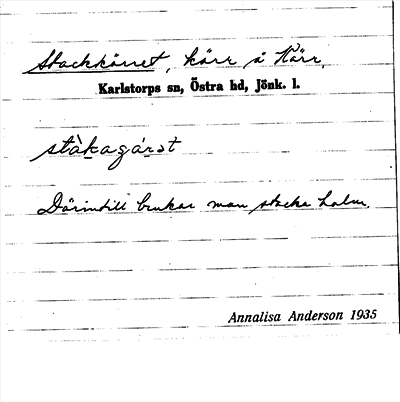 Stackkärret, kärr å Kärr.
Karlstorps sn, Östra hd, Jönk. l.
stàkagáʀət
Därintill brukar man stacka halm.
Annalisa Anderson 1935